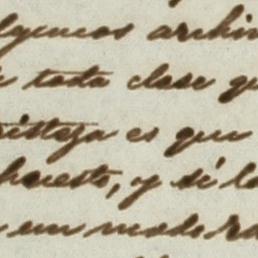 lgunos archi
toda clase q
ristaza es que
puesto, y si lo
un modo ra